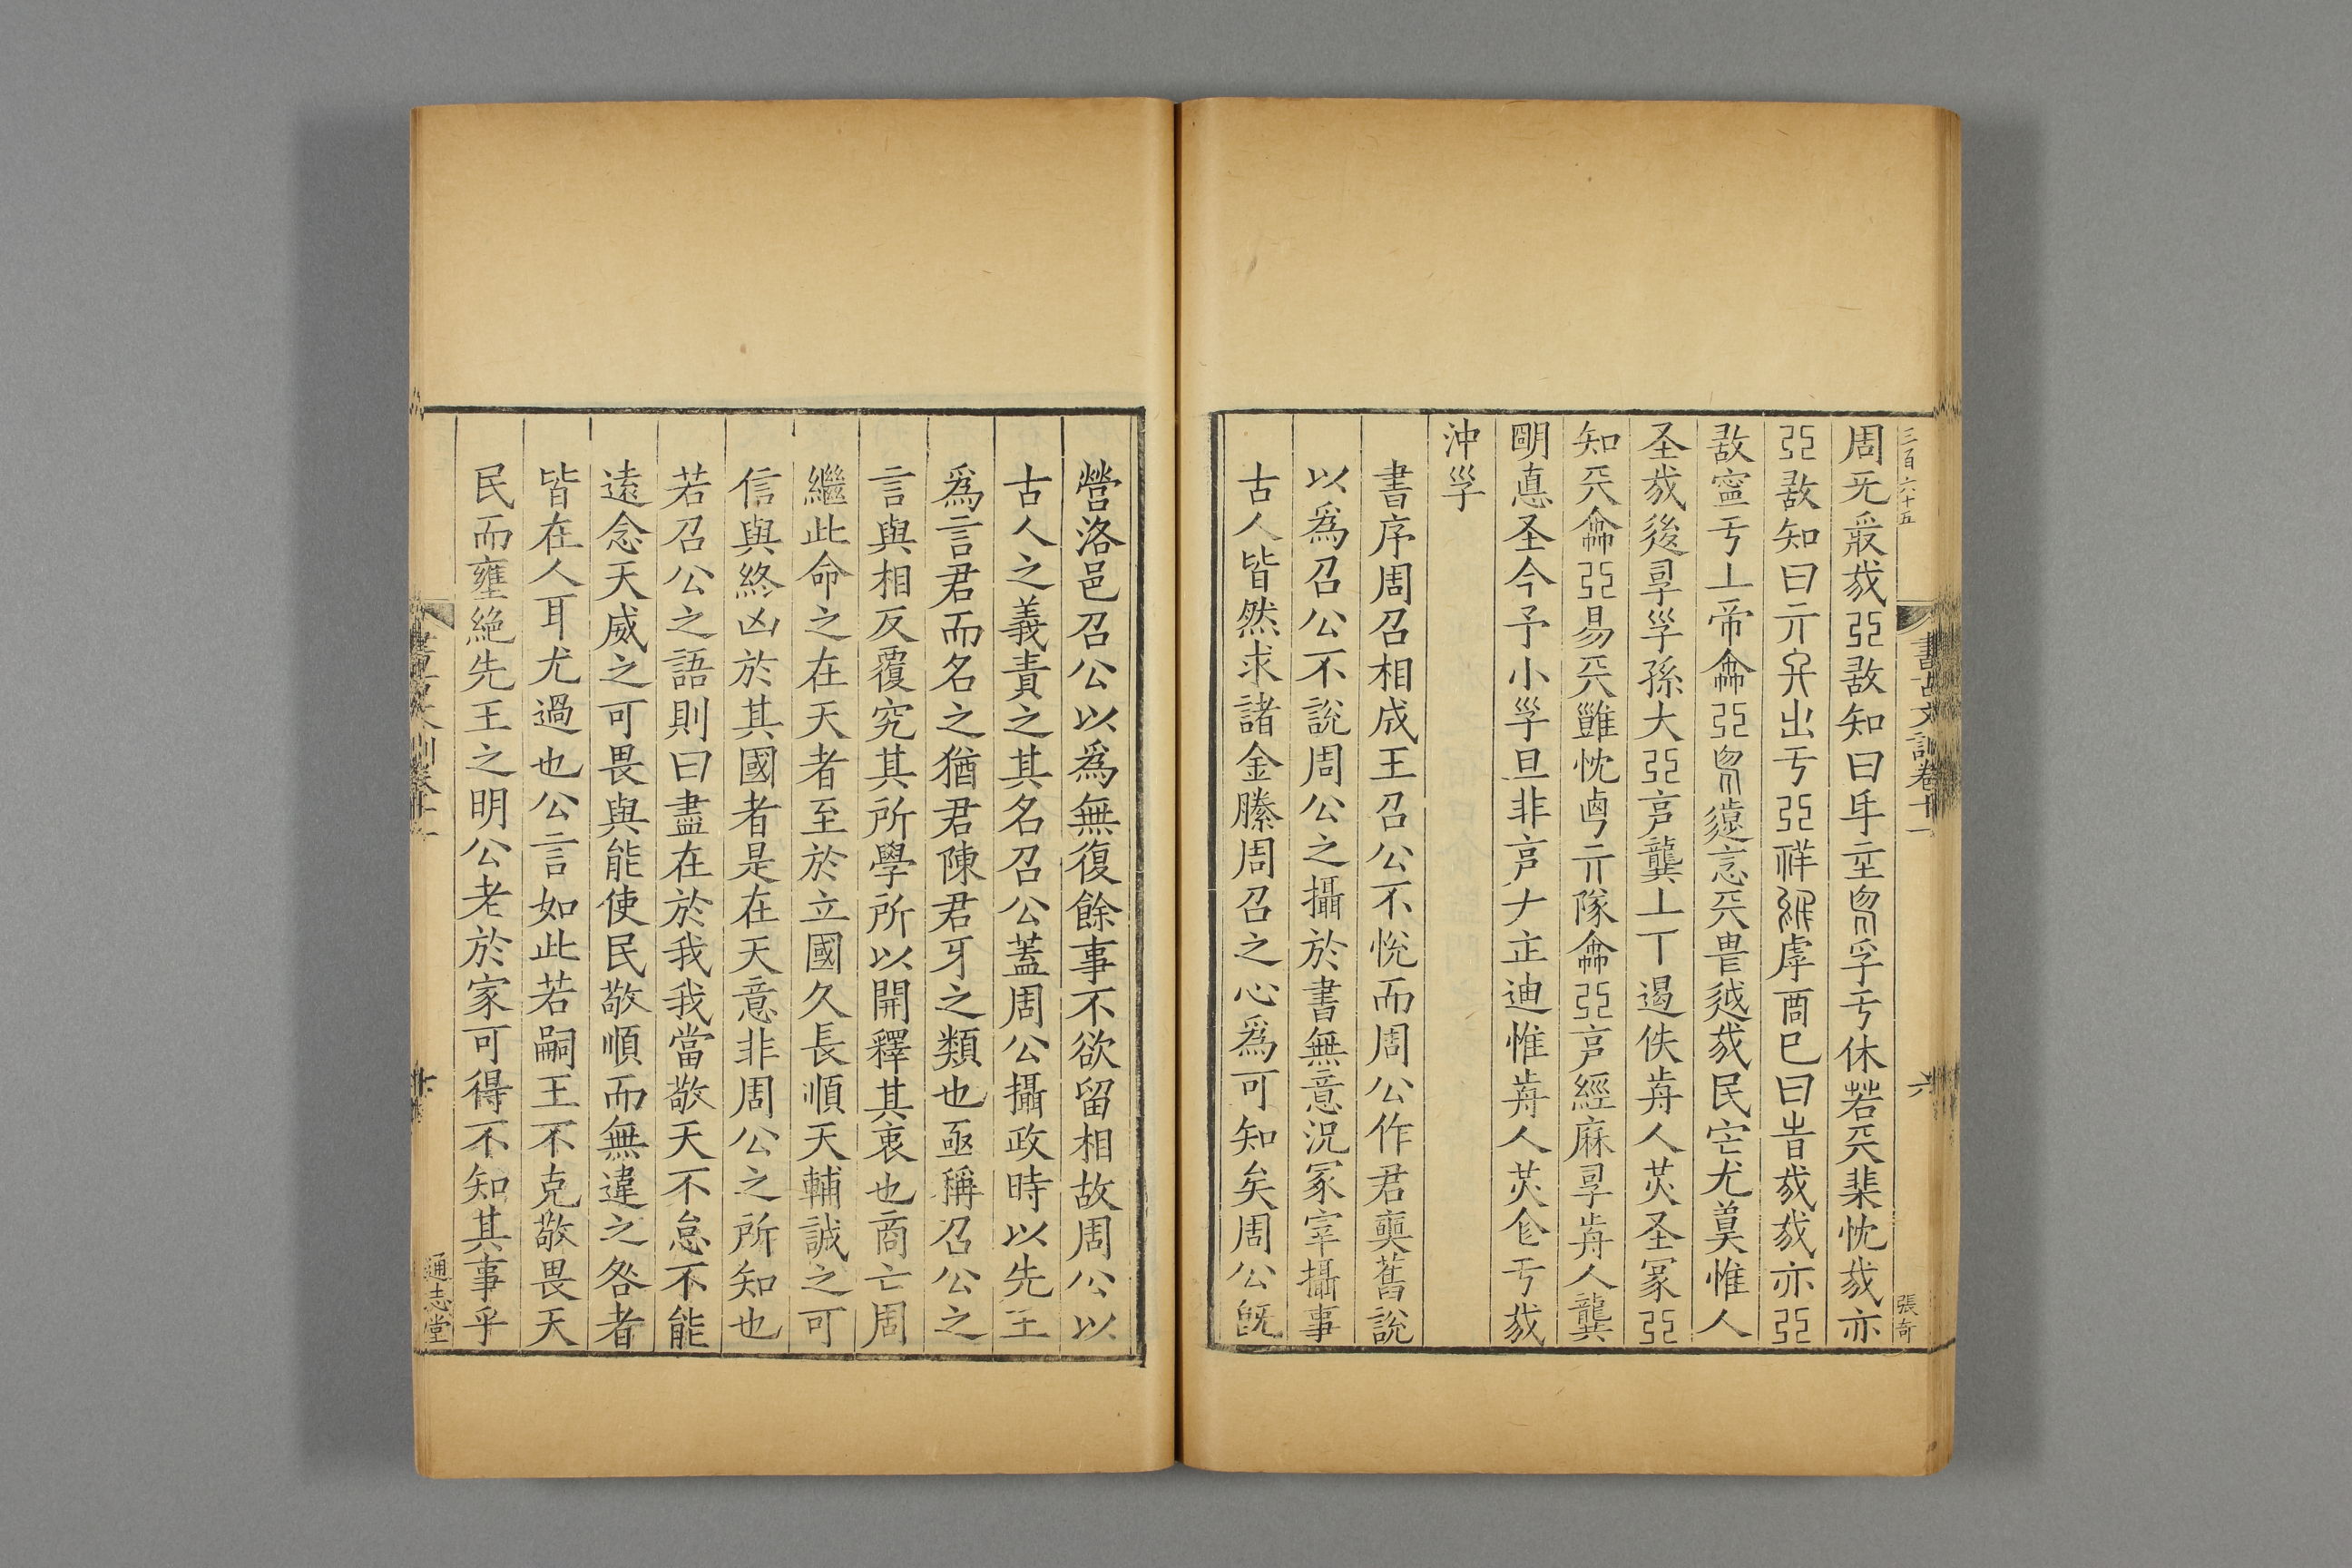 三百六十五
書古文訓卷十一
六
張奇
周旡𠬪𢦠亞敢知曰𠂆𡉉𠃵孚亐休若𠀘棐忱𢦠亦
亞敢知曰亓𠔾出亐亞祥𦄂虖𠱭已曰旹𢦠𢦠亦亞
敢寍亐丄帝龠亞𠃵遠㤈𠀘畏越𢦠民空尤莫惟人
圣𢦠後孠孳孫大亞亯龔丄丅遏佚歬人炗圣冡亞
知𠀘龠亞易𠀘雖忱卥亓隊龠亞亯經厤孠歬人龔
明悳圣今予小孳旦非亯𠂇正迪惟歬人炗仺亐𢦠
沖孳
書序周召相成王召公不悅而周公作君奭舊說
以爲召公不說周公之攝於書無意況冢宰攝事
古人皆然求諸金縢周召之心爲可知矣周公旣
營洛邑召公以爲無復餘事不欲留相故周公以
古人之義責之其名召公蓋周公攝政時以先王
爲言君而名之猶君陳君牙之類也亟稱召公之
言與相反覆究其所學所以開釋其衷也商亡周
繼此命之在天者至於立國久長順天輔誠之可
信與終凶於其國者是在天意非周公之所知也
若召公之語則曰盡在於我我當敬天不怠不能
遠念天威之可畏與能使民敬順而無違之咎者
皆在人耳尤過也公言如此若嗣王不克敬畏天
民而壅絶先王之明公老於家可得不知其事乎
通志堂